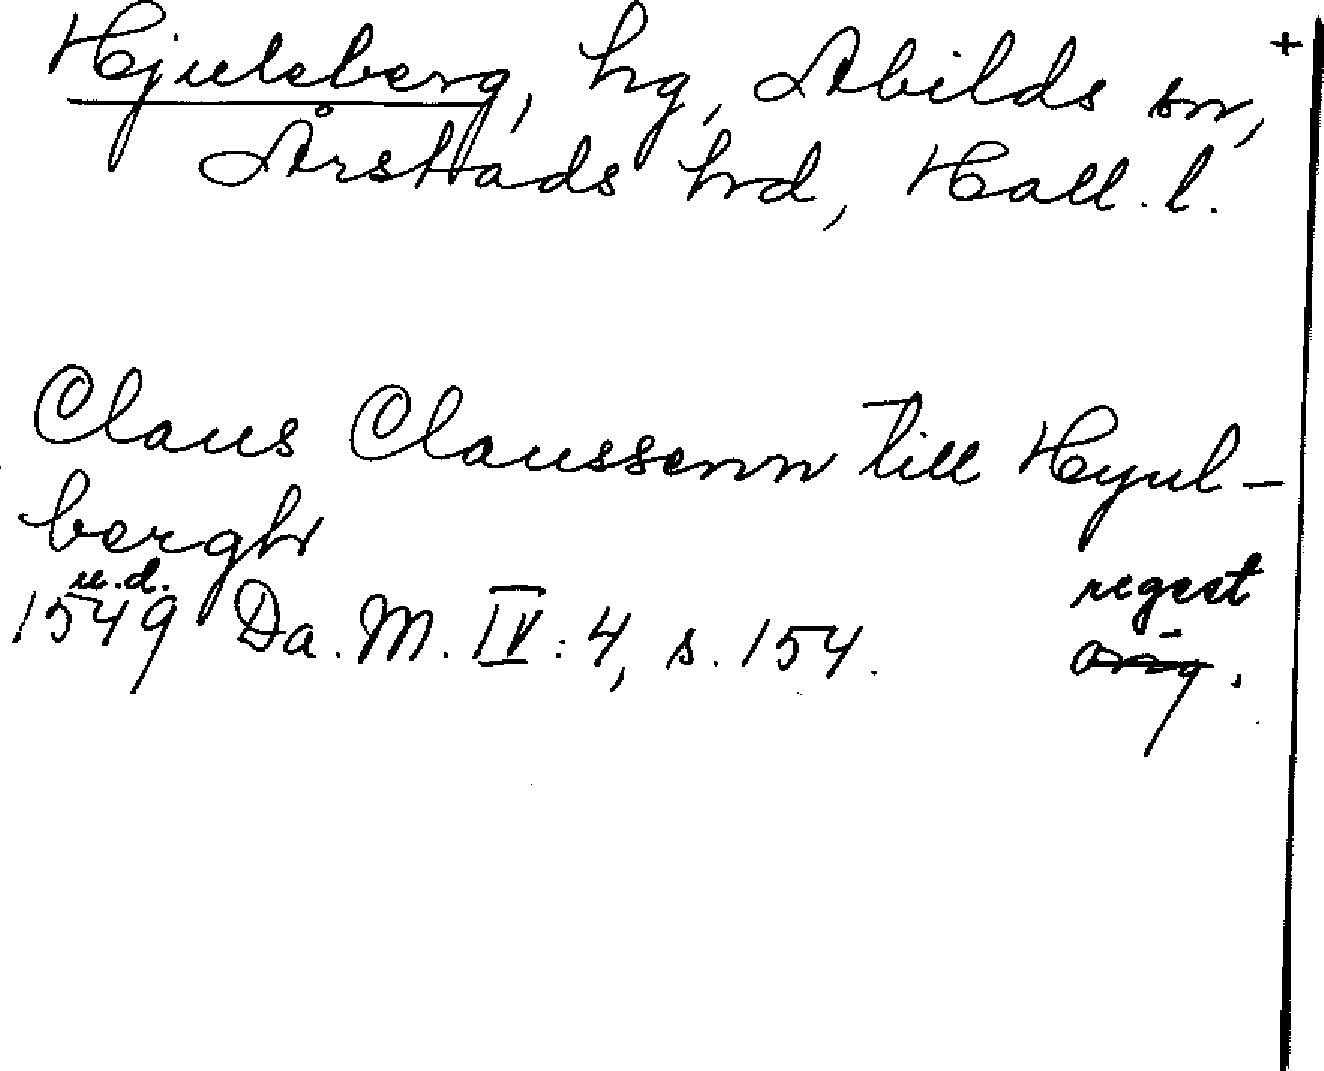 Hjuleberg, hg, Abilds sn, +
Årstads hd, Hall. l.
Claus Claussenn till Hyul-
bergh
u.d. regest
1549 Da. M. IV: 4, s. 154. orig.